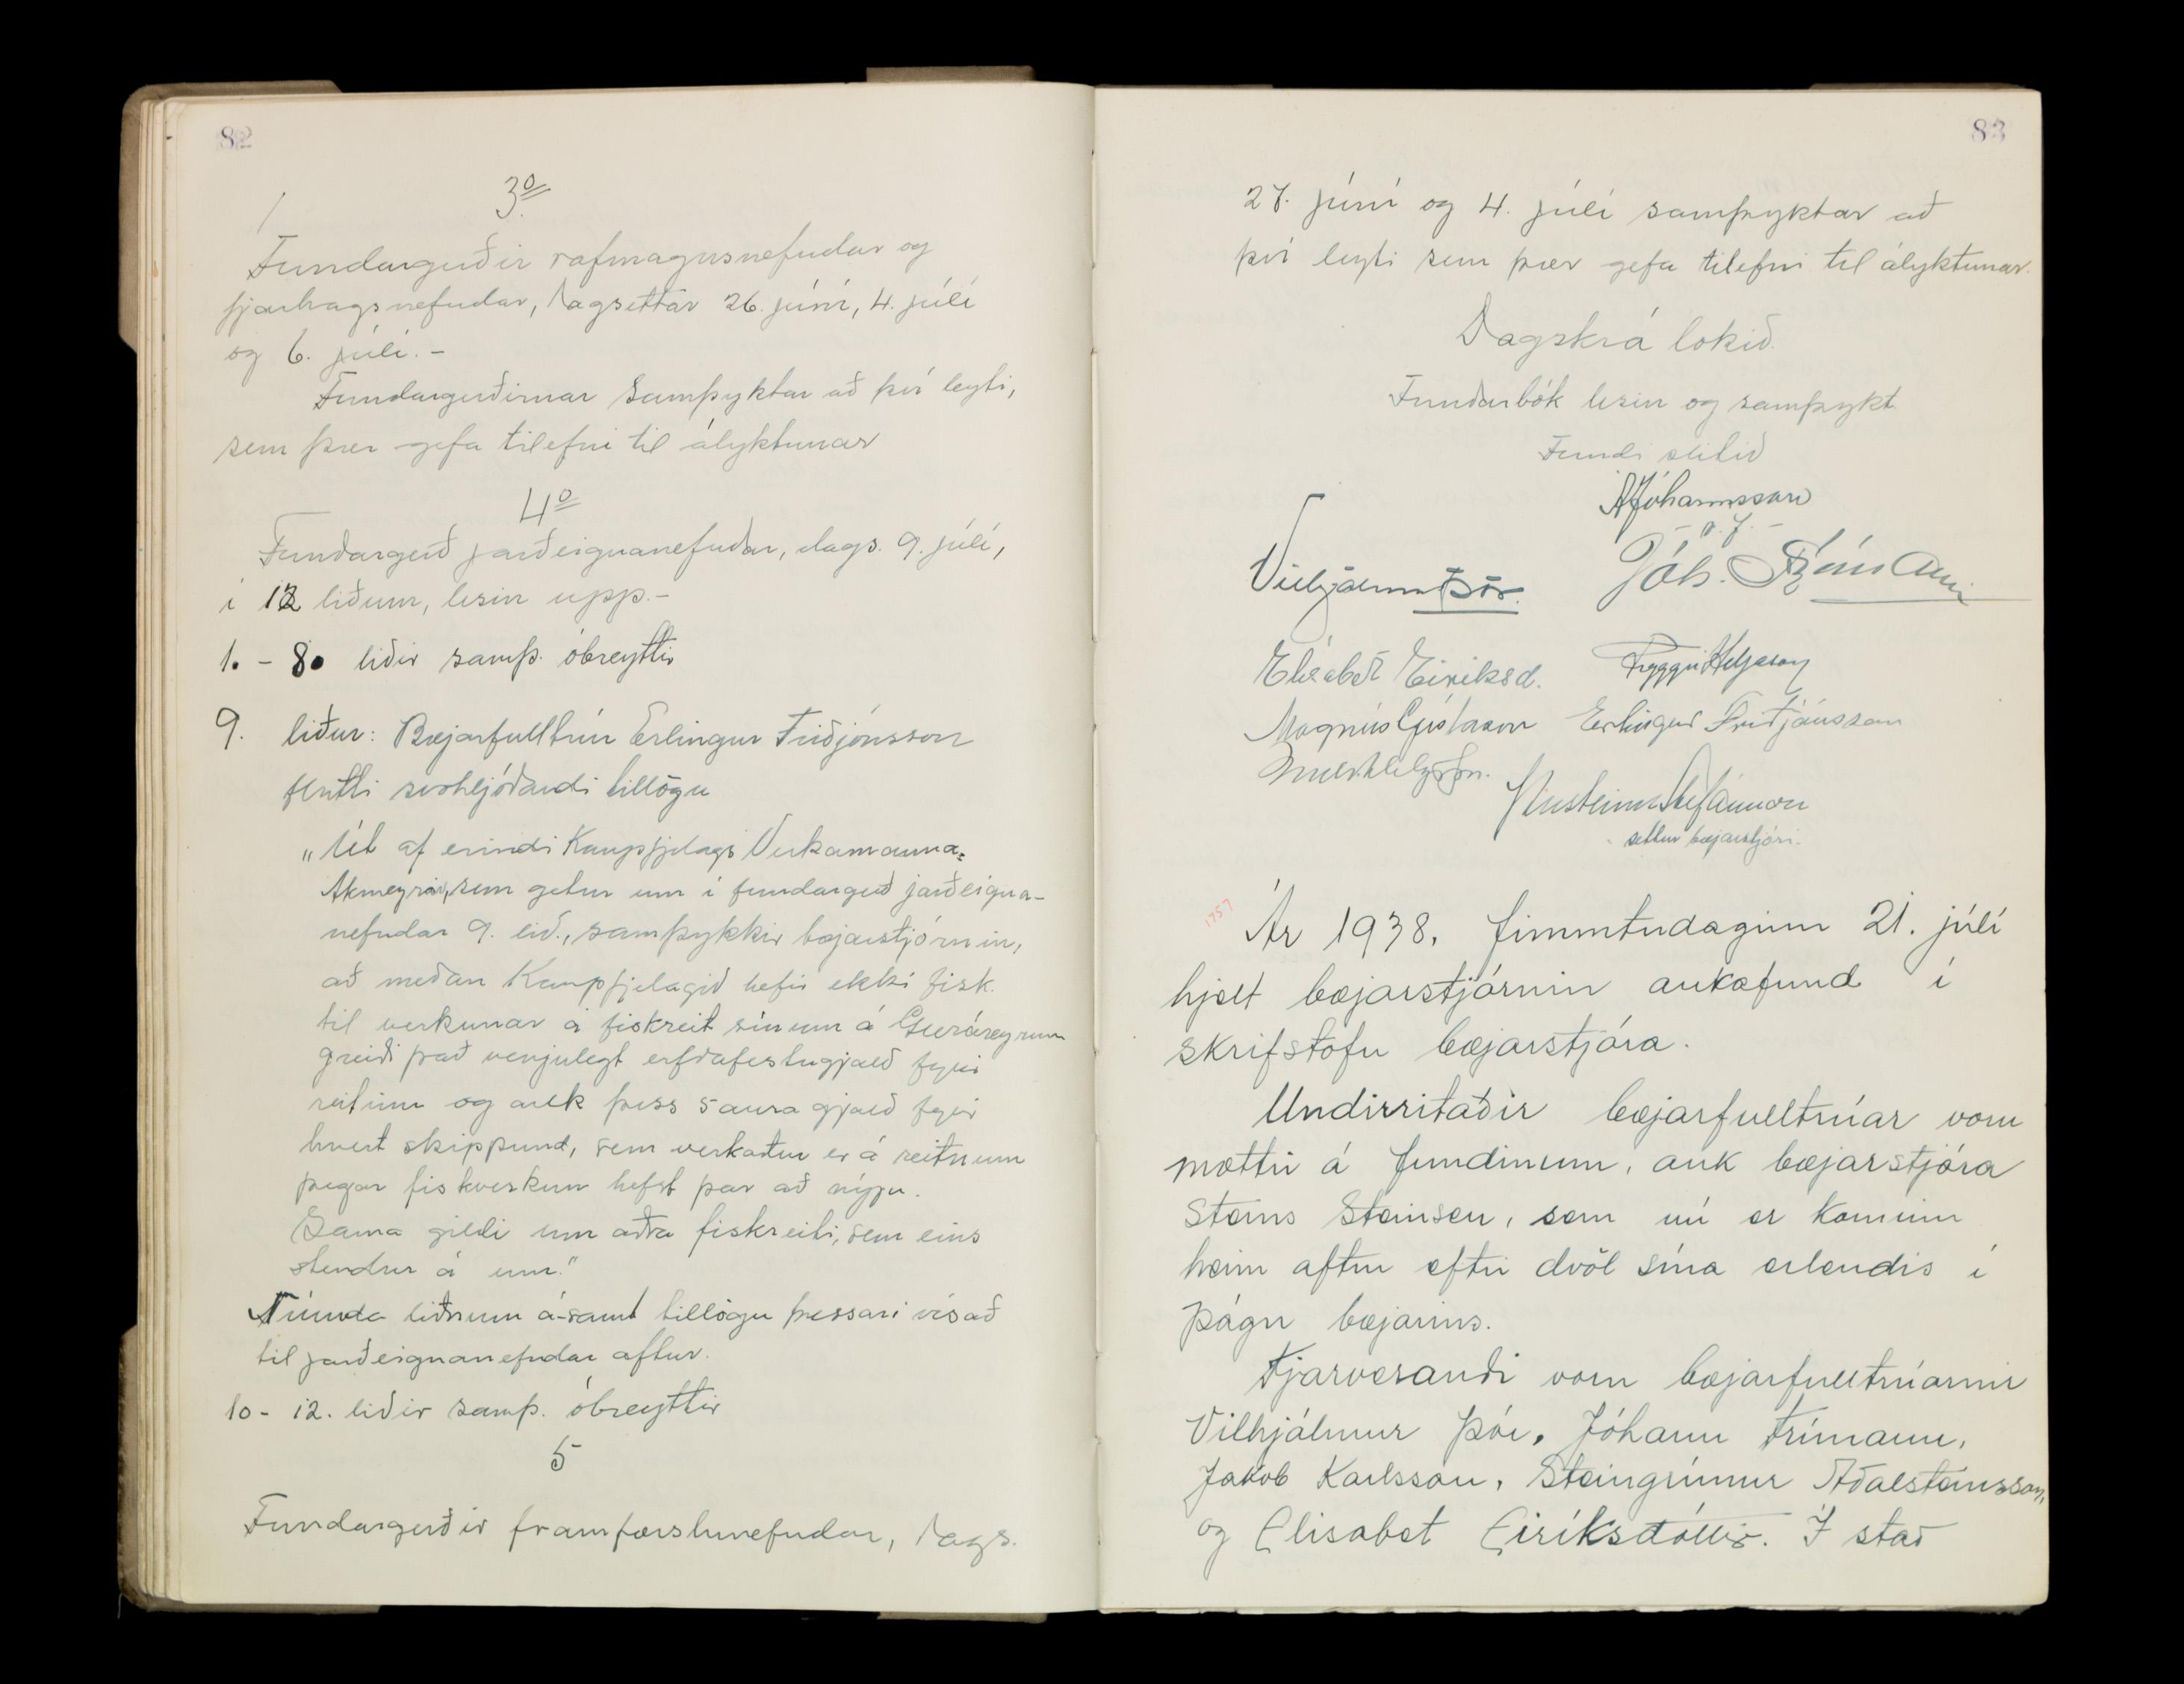 82
3º
Fundargerðir rafmagnsnefndar og
fjárhagsnefndar, dagsettar 26. júní, 4. júlí
og 6. júlí. -
Fundargerðirnar samþyktar að því leyti,
sem þær gefa tilefni til ályktunar
4º
Fundargerð jarðeignanefndar, dags. 9. júlí,
í 12 liðum, lesin upp. -
1. - 8. liðir samþ. óbreyttir
9. liður: Bæjarfulltrúi Erlingur Friðjónsson
flutti svohljóðandi tillögu
"Út af erindi Kaupfjelags Verkamanna=
Akureyrar, sem getur um í fundargerð jarðeigna-
nefndar 9. lið., samþykkir bæjarstjórnin,
að meðan Kaupfjelagið hefir ekki fisk
til verkunar á fiskreit sínum á Gleráreyrum
greiði það venjulegt erfðafestugjald fyrir
reitinn og auk þess 5 aura gjald fyrir
hvert skippund, sem verkaður er á reitnum
þegar fiskverkun hefst þar að nýju.
Sama gildi um aðra fiskreiti, sem eins
stendur á um."
Níunda liðnum á-samt tillögu þessari vísað
til jarðeignanefndar aftur.
10 - 12. liðir samþ. óbreyttir
5
Fundargerðir framfærslunefndar, dags.
83
27. júní og 4. júlí samþyktar að
því leyti sem þær gefa tilefni til ályktunar.
Dagskrá lokið.
Fundarbók lesin og samþykt.
Fundi slitið
AJóhannsson
Vilhjálmur Þór. Jóh. Frímann
Elísabet Eiríksd. Tryggvi Helgason
Magnús Gíslason Erlingur Friðjónsson
Þorsteinn Stefánsson
settur bæjarstjóri.
1757
Ár 1938, fimmtudaginn 21. júlí
hjelt bæjarstjórnin aukafund í
skrifstofu bæjarstjóra.
Undirritaðir bæjarfulltrúar voru
mættir á fundinum, auk bæjarstjóra
Steins Steinsen, sem nú er kominn
heim aftur eftir dvöl sína erlendis í
þágu bæjarins.
Fjarverandi voru bæjarfulltrúarnir
Vilhjálmur Þór, Jóhann Frímann,
Jakob Karlsson, Steingrímur Aðalsteinsson,
og Elisabet Eiríksdóttir. Í stað